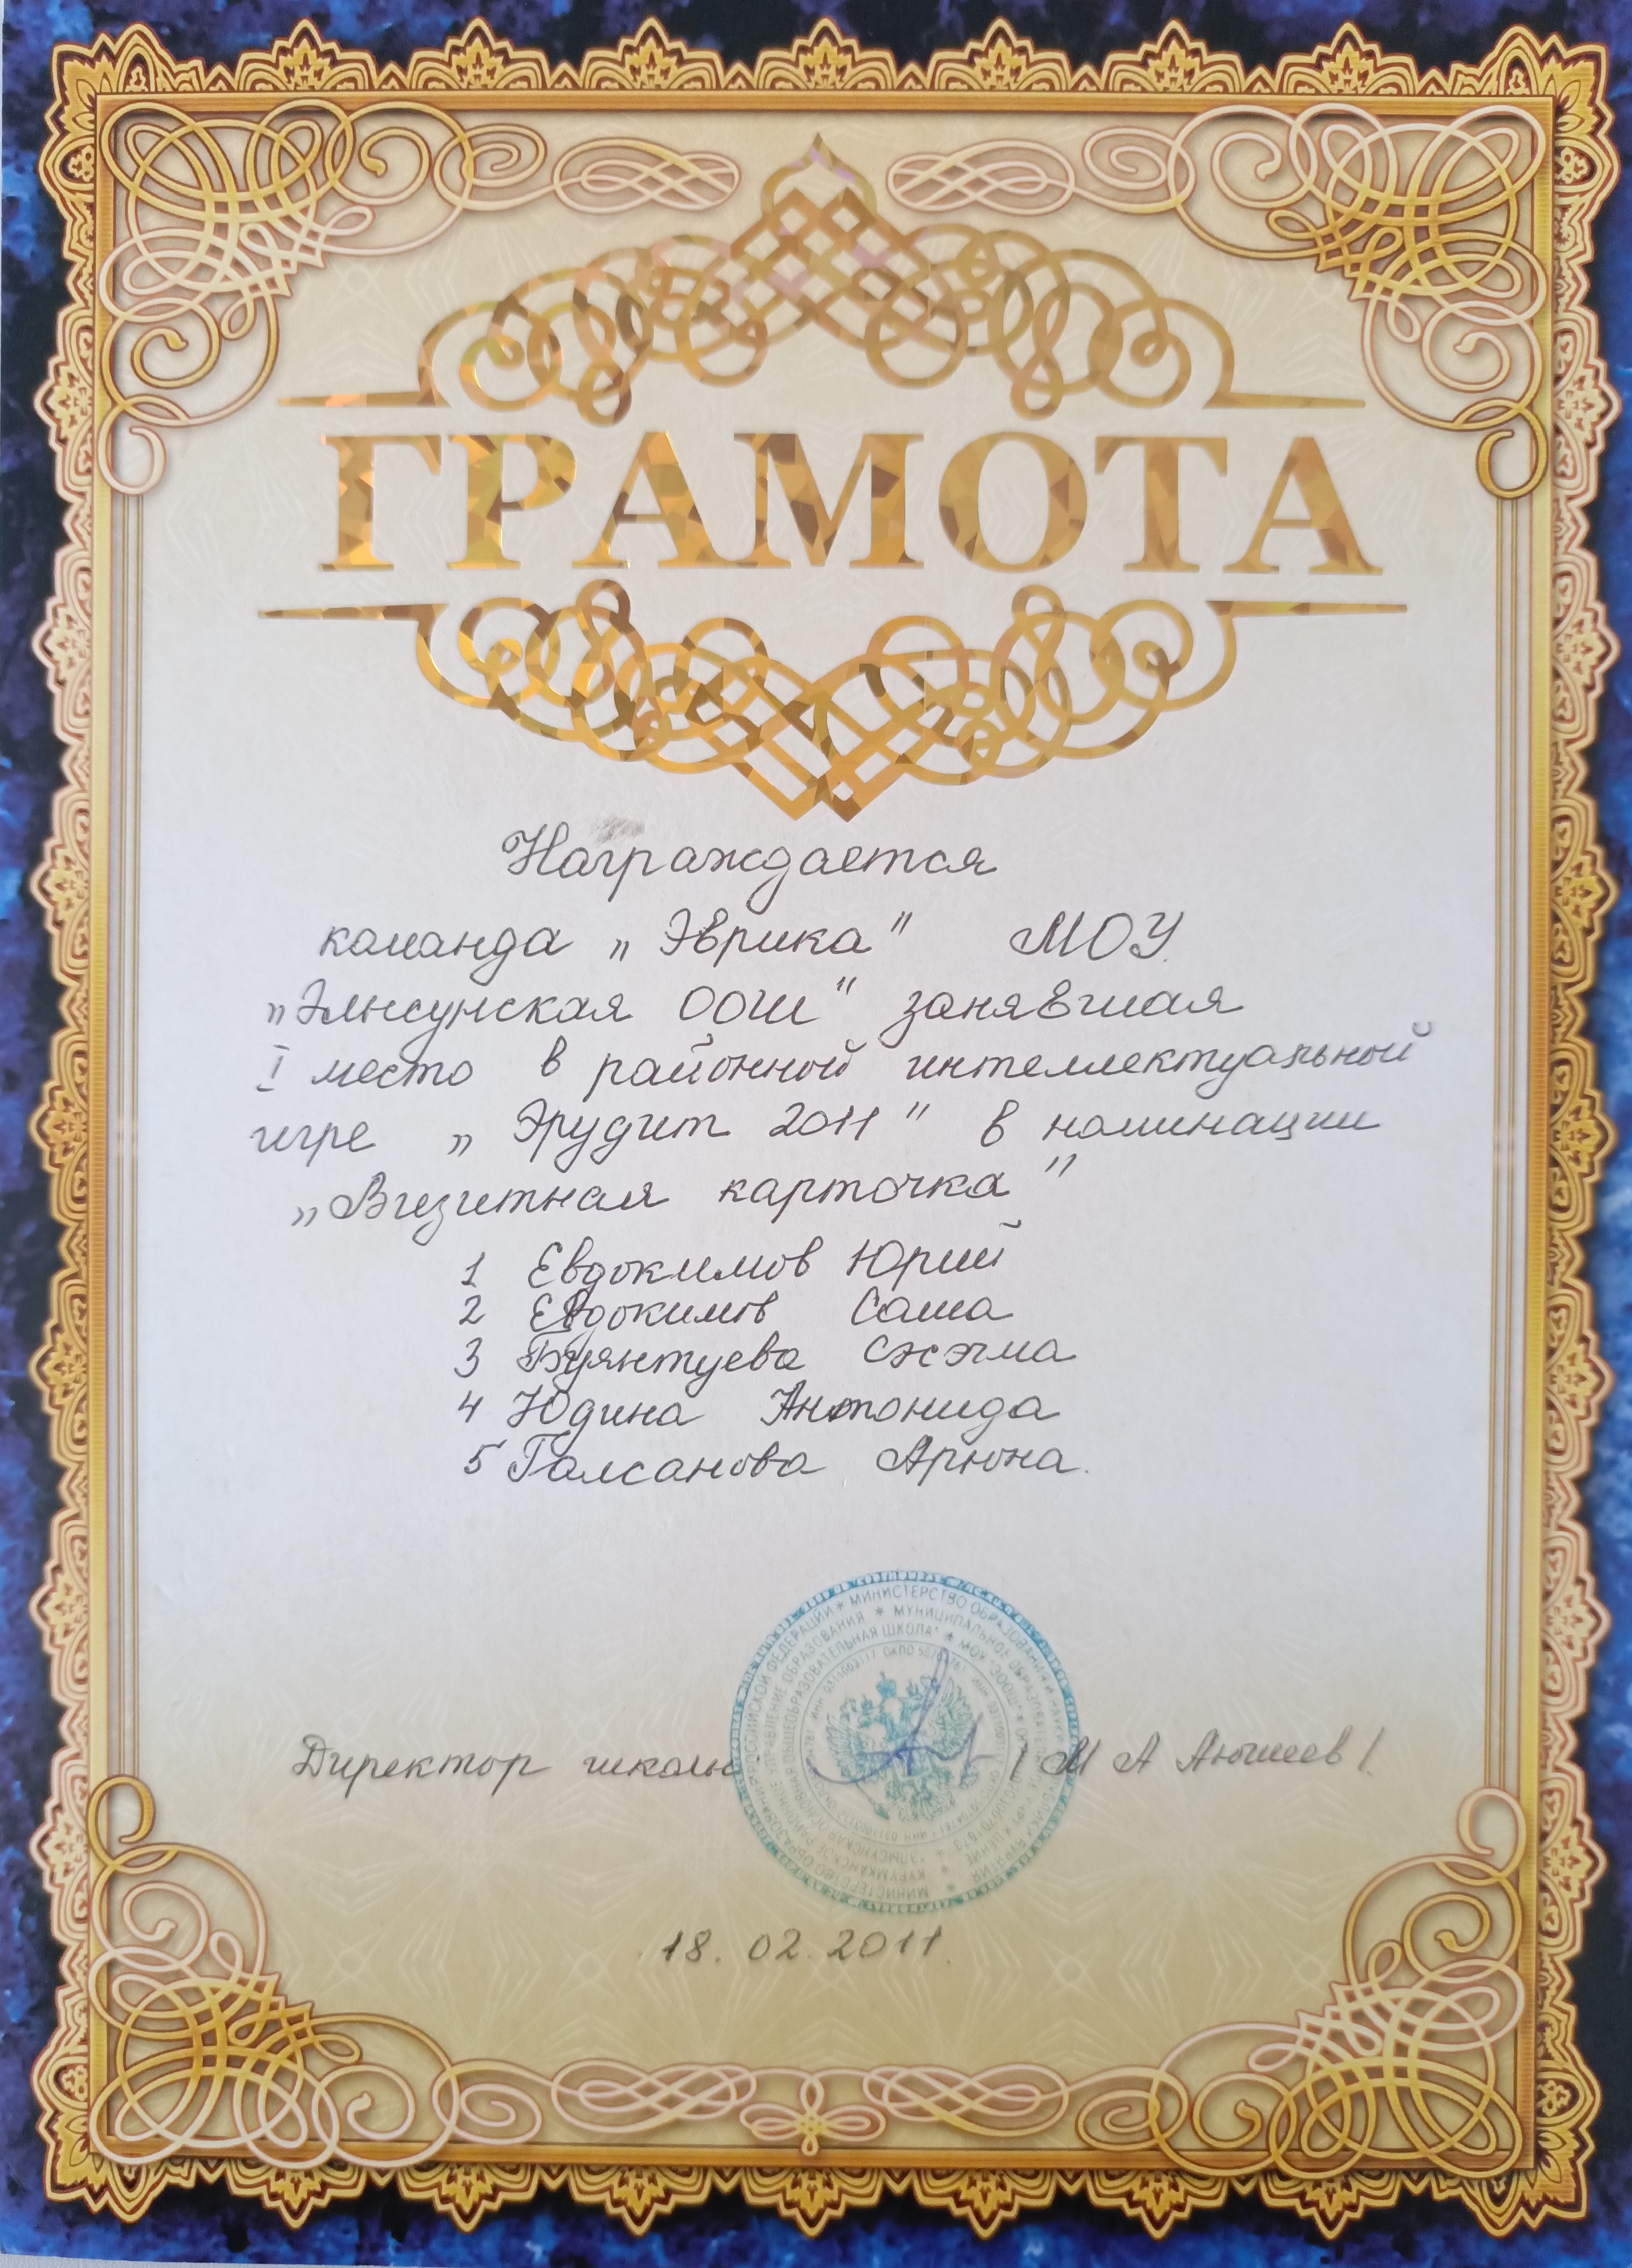 ГРАМОТА
Награждается
команда „Эврика" МОУ
„Элысунская ООШ" занявшая
I место в районной интеллектуальной
игре „Эрудит 2011" в номинации
„Визитная карточка"
1 Евдокимов Юрий
2 Евдокимов Саша
3 Буянтуева Сэсэгма
4 Юдина Антонида
5 Галсанова Арюна.
Директор школы / М А Аюшеев /.
МИНИСТЕРСТВО ОБРАЗОВАНИЯ И НАУКИ
РОССИЙСКОЙ ФЕДЕРАЦИИ
МУНИЦИПАЛЬНОЕ
УПРАВЛЕНИЕ ОБРАЗОВАНИЯ
ОБЩЕОБРАЗОВАТЕЛЬНАЯ ШКОЛА"
18.02.2011.